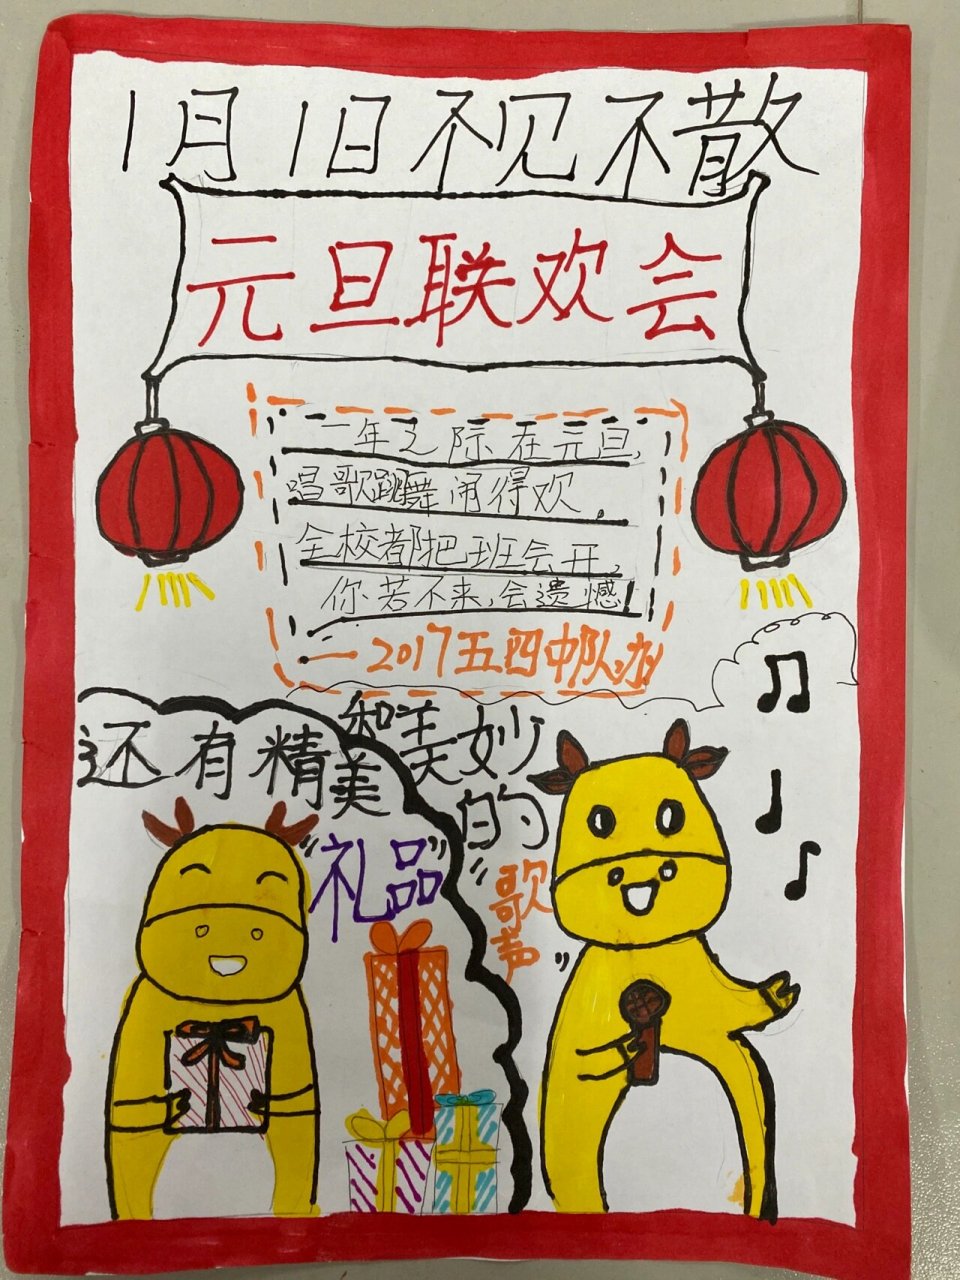 1月1日不见不散
元旦联欢会
一年之际在元旦,
唱歌跳舞闹得欢,
全校都把班会开,
你若不来,会遗憾!
—2017五四中队办
还有精美
"礼品"
和美妙
的
"歌声"